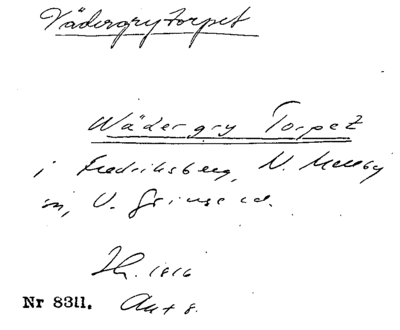 Vädergrytorpet
Wädergry Torpet
i Fredriksberg, N. Mellby
sn, V. Göinge hd.
Jb. 1816
Nr 8311. Akt 8.